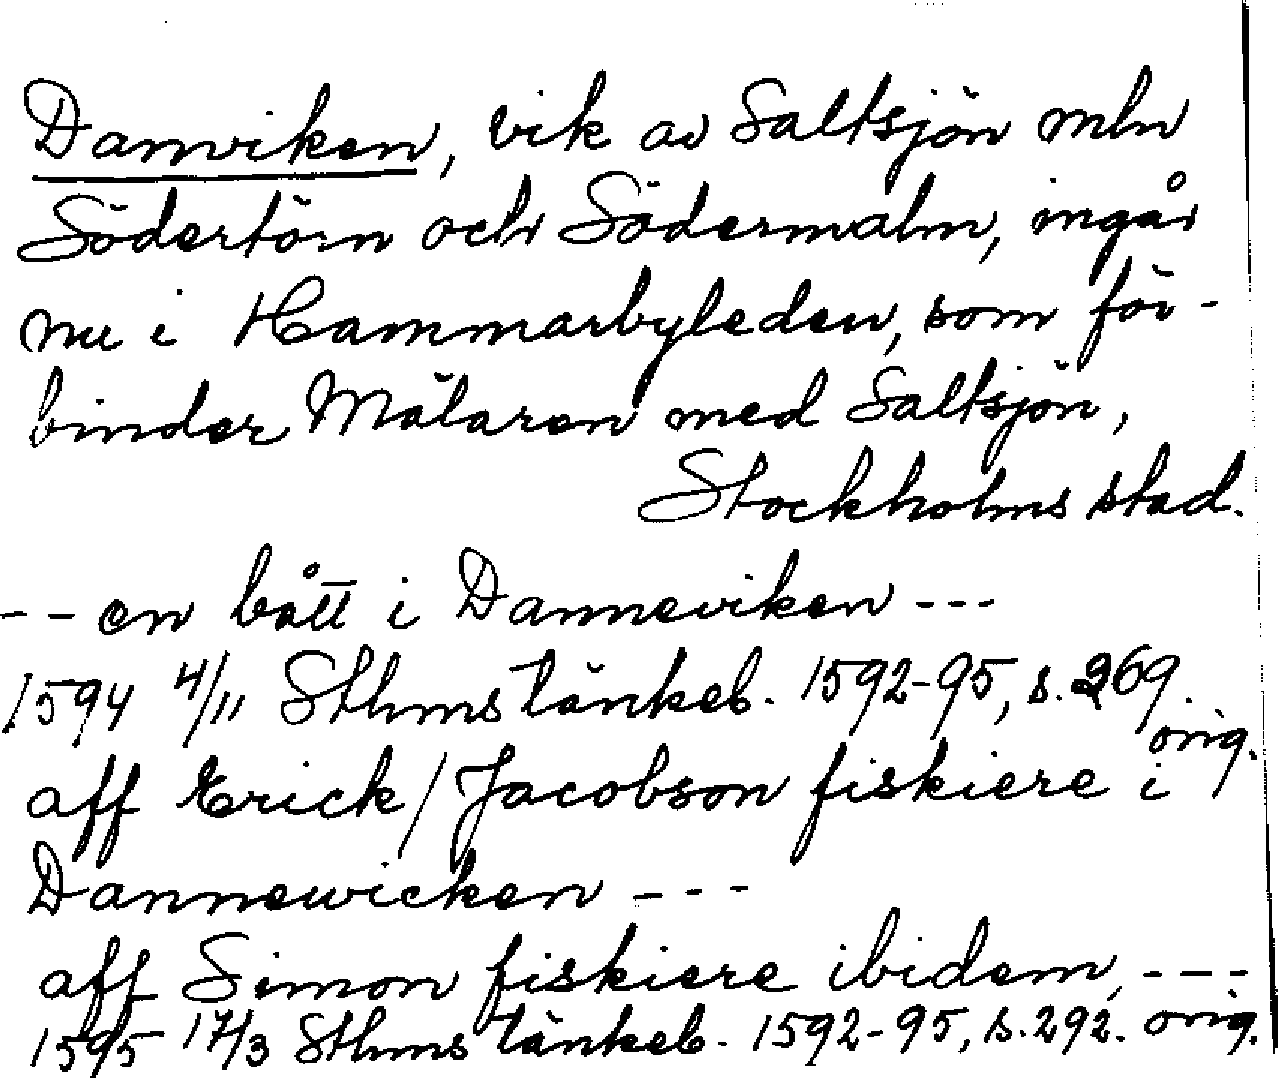 Danviken, vik av Saltsjön mln
Södertörn och Södermalm, ingår
nu i Hammarbyleden, som för-
binder Mälaren med Saltsjön,
Stockholms stad.
-- en bått i Danneviken ---
1594 4/11 Sthms tänkeb. 1592-95, s. 269.
orig.
aff Erick / Jacobson fiskiere i
Dannewicken ---
aff Simon fiskiere ibidem, ---
1595 17/3 Sthms tänkeb. 1592-95, s. 292. orig.